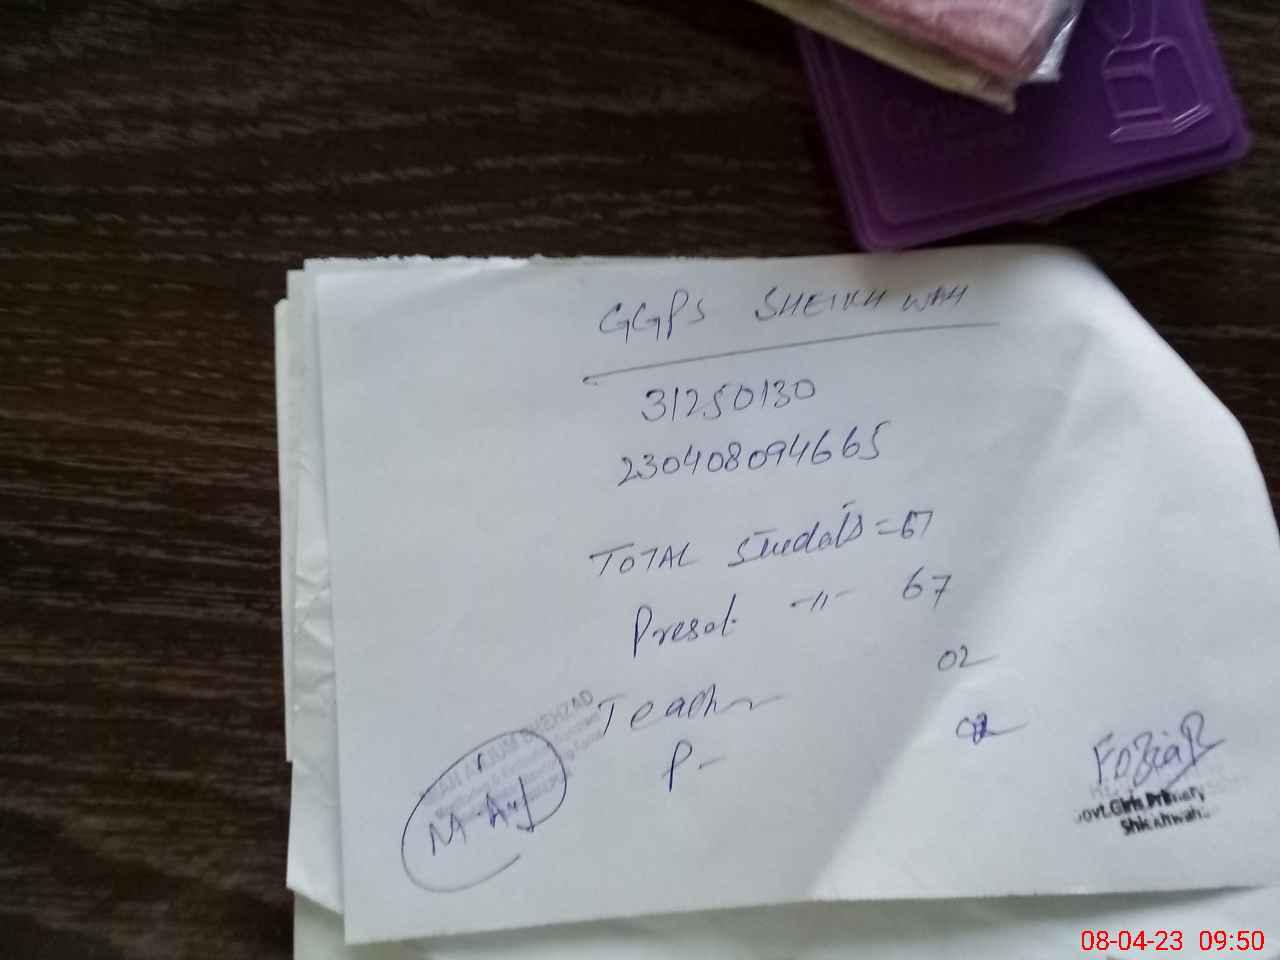 GGPS SHEIKH WAH
31250130
230408094665
TOTAL Studets = 67
Preset -11- 67
Teacher 02
P - 02
M-Auf
FOZiaR
Govt. Girls Primary
Shiekhwah
08-04-23 09:50